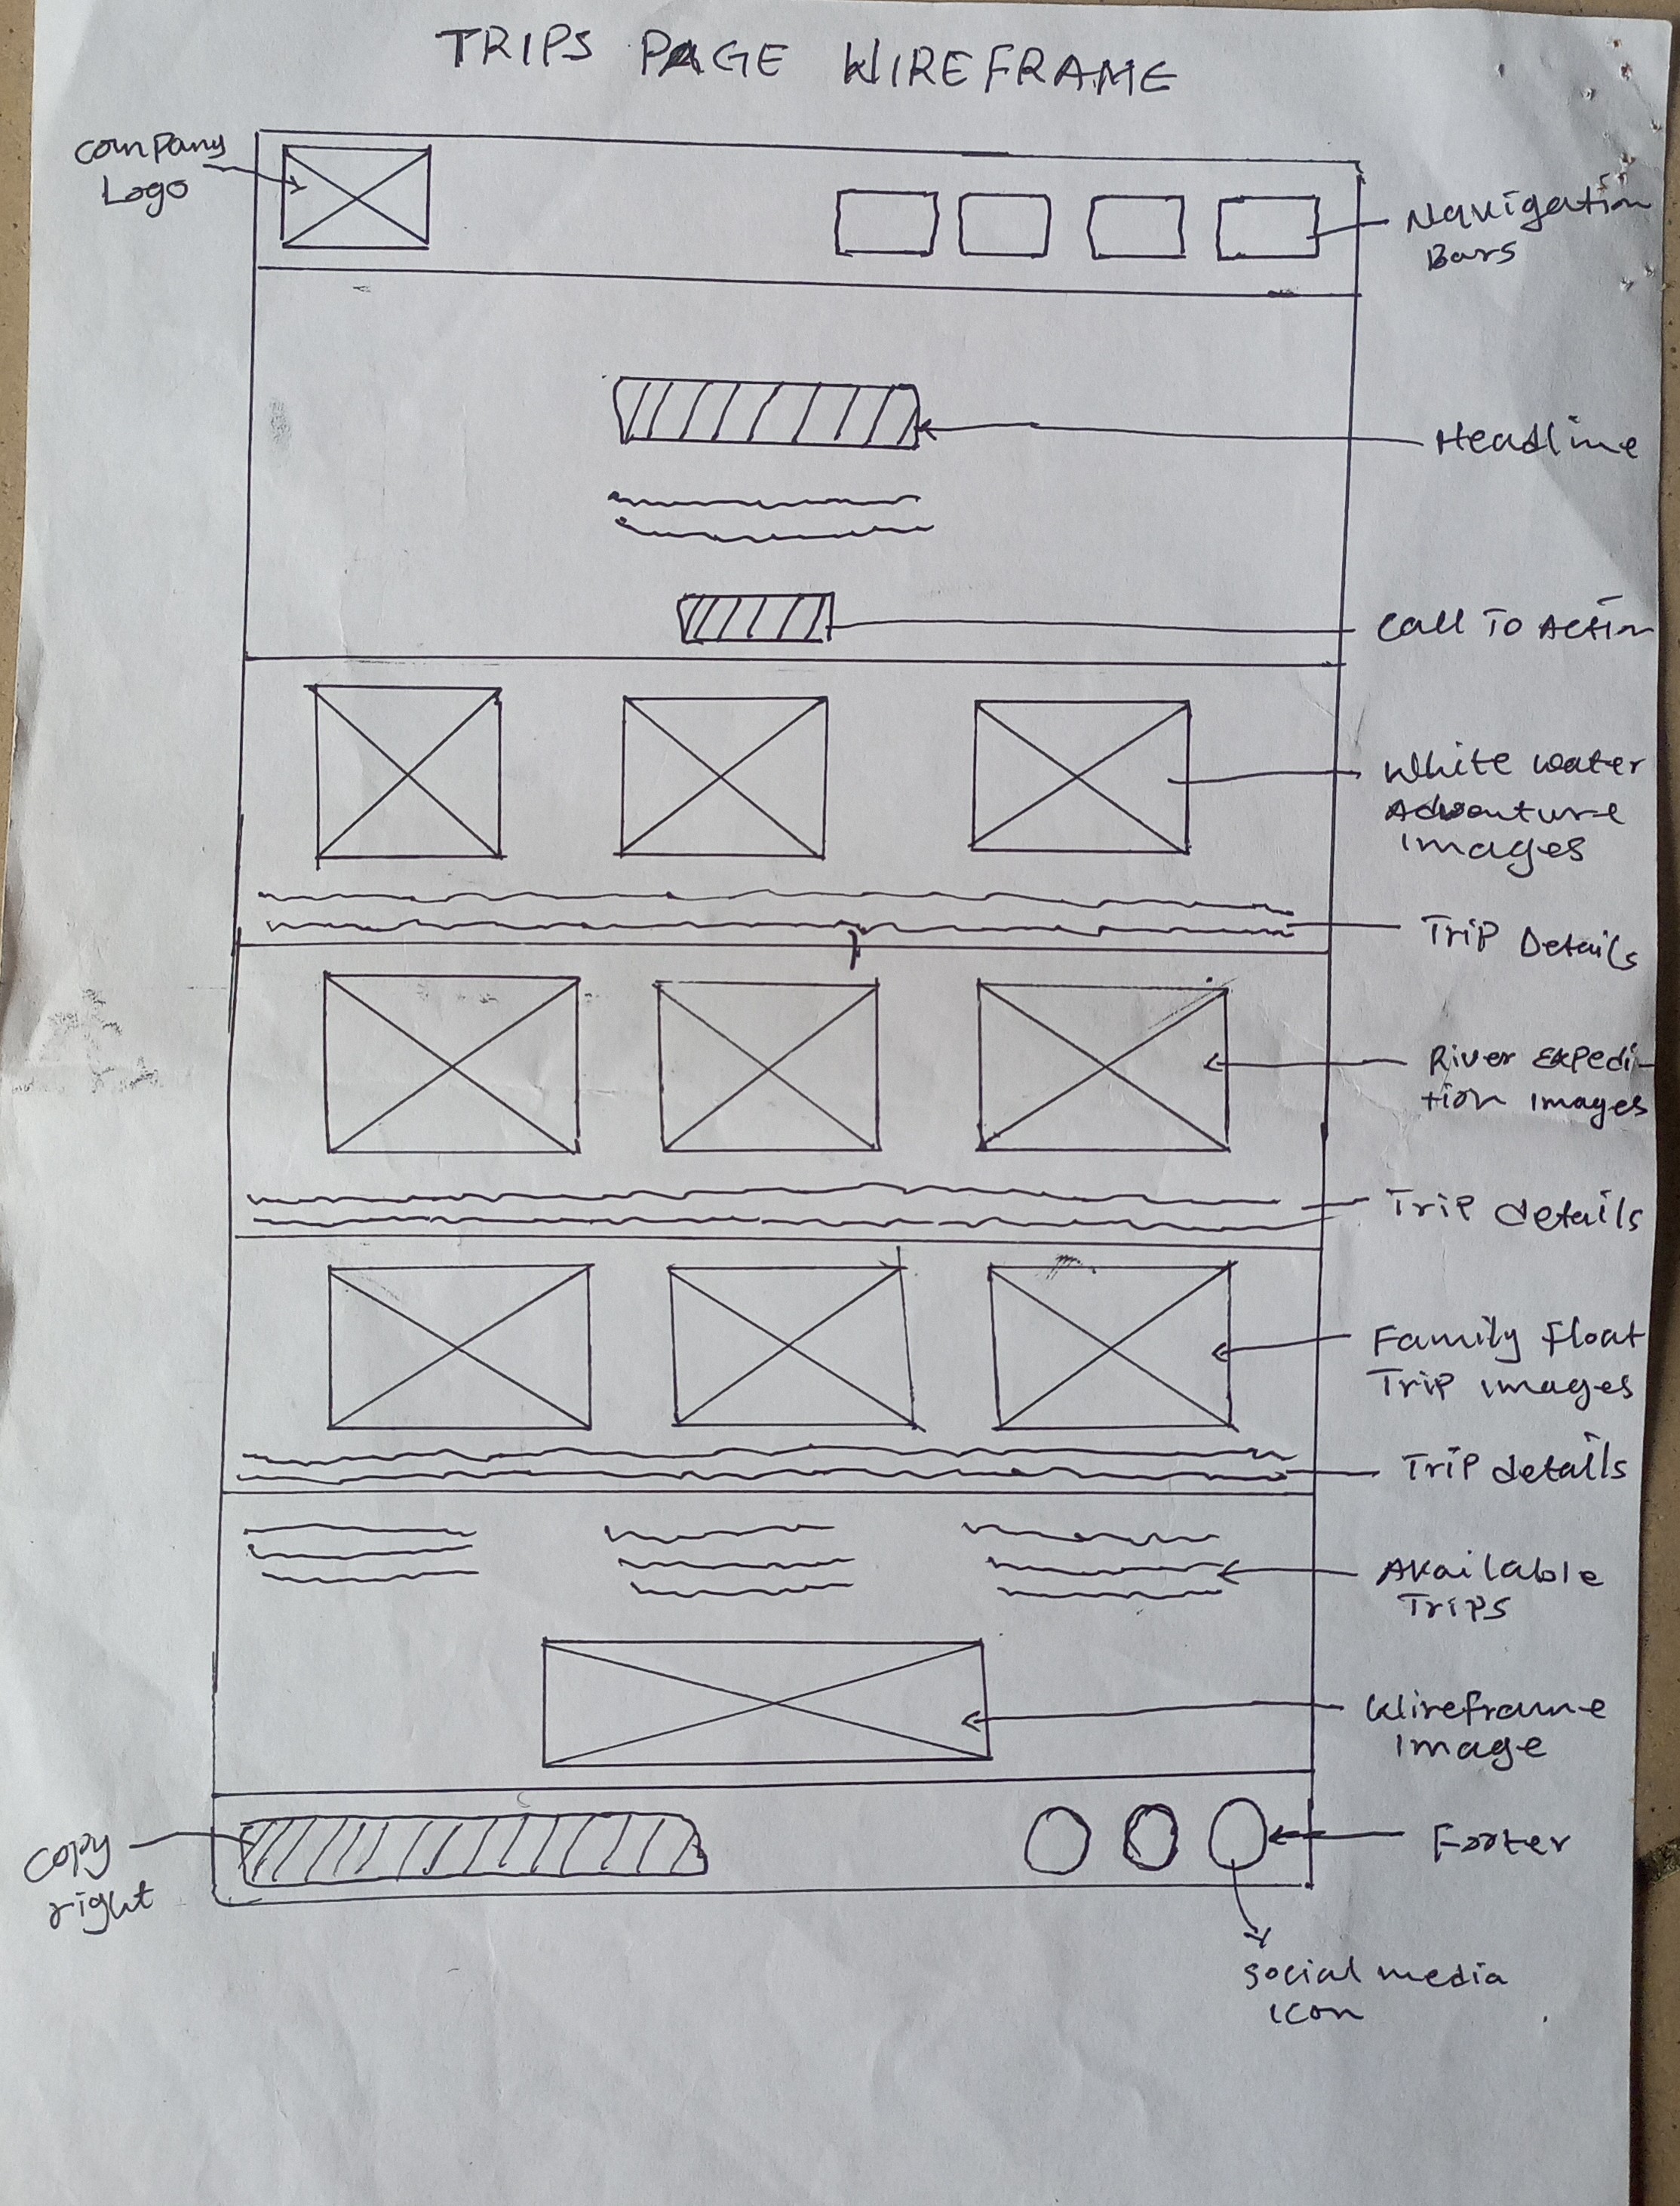 TRIPS PAGE WIREFRAME
Company
Logo
Navigation
Bars
Headline
Call To Action
White water
Adventure
Images
Trip Details
River Expedi-
tion Images
Trip details
Family Float
Trip images
Trip details
Available
Trips
Wireframe
Image
Copy
right
Footer
social media
icon